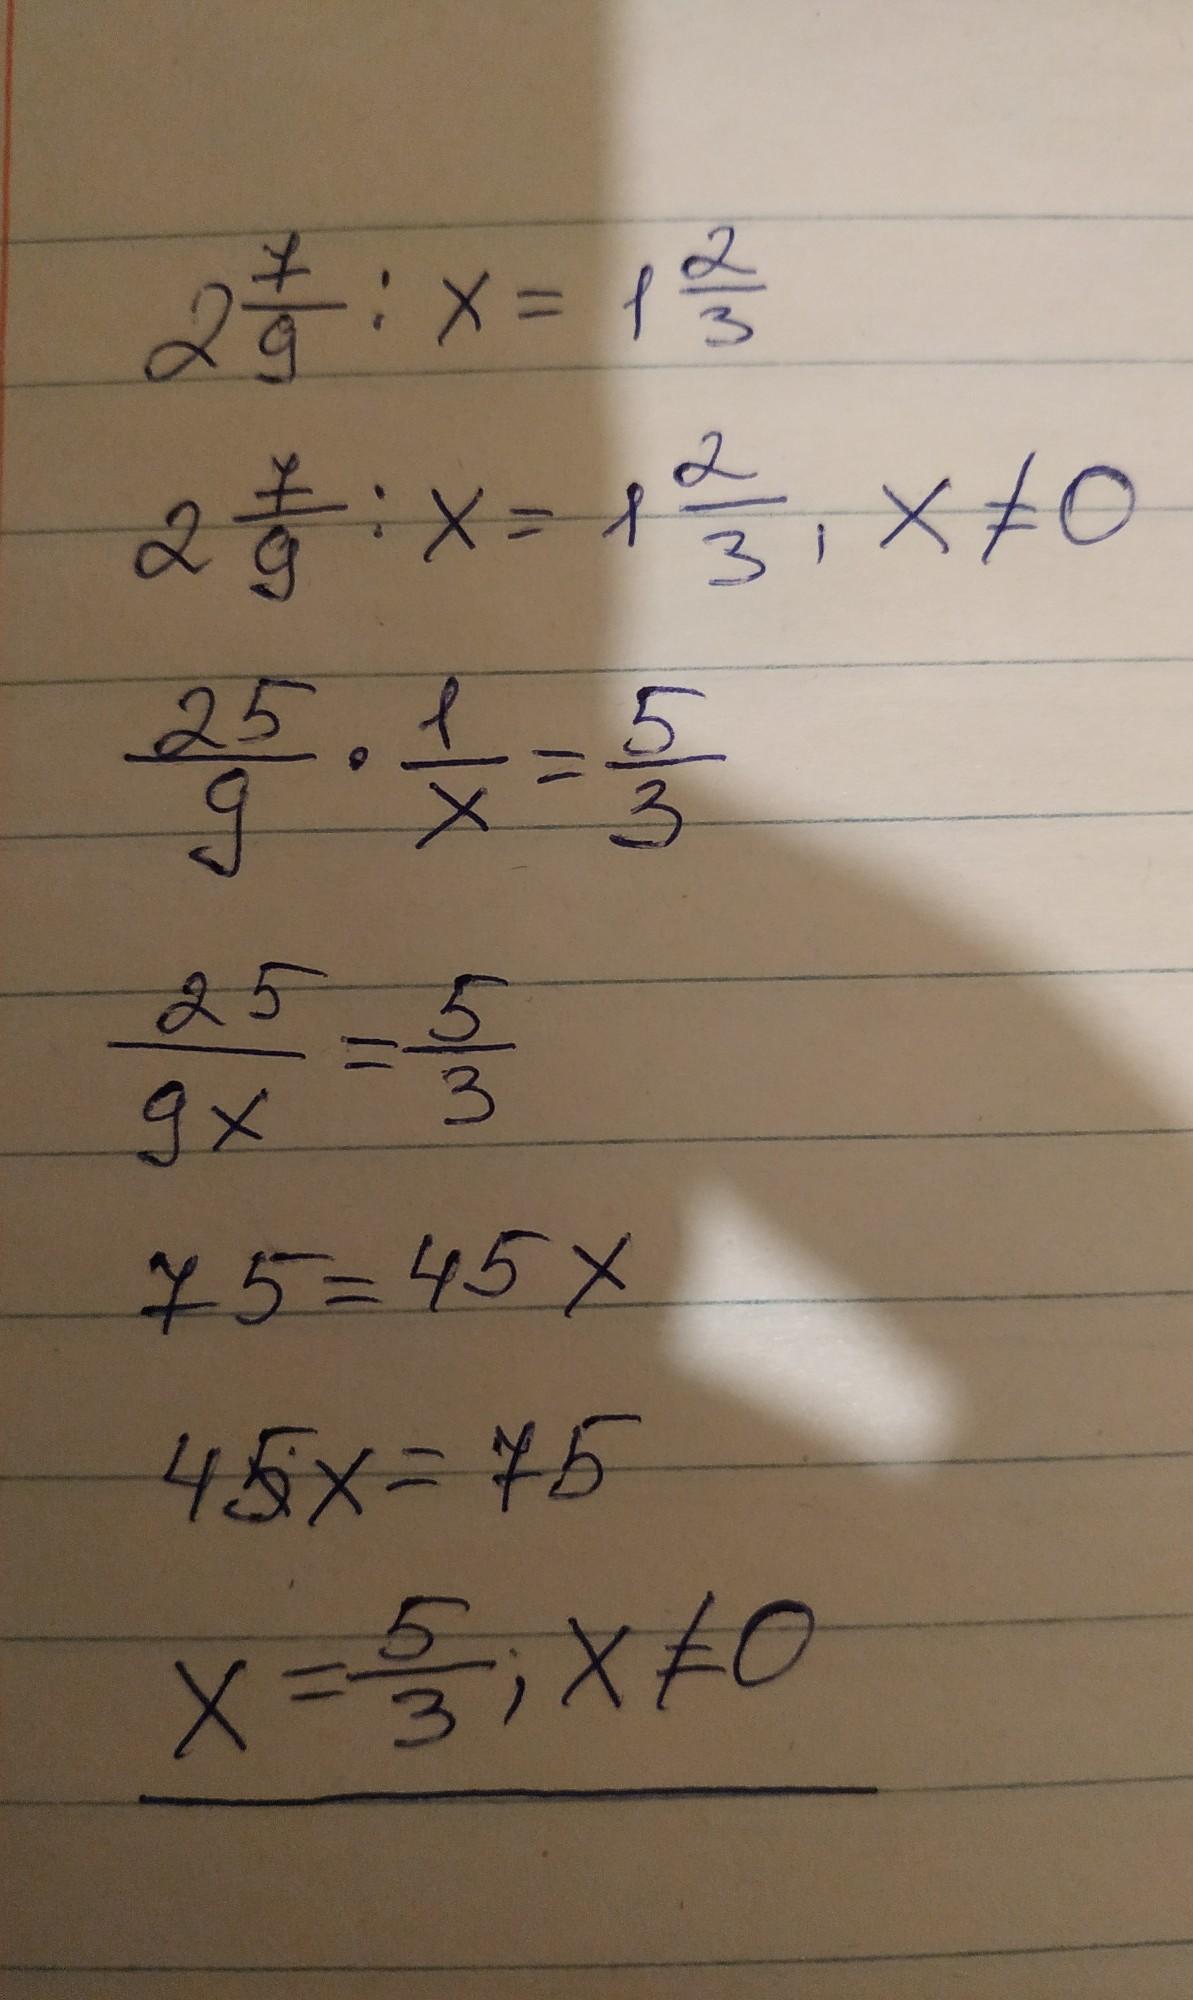 2 7/9 : x = 1 2/3
2 7/9 : x = 1 2/3, x ≠ 0
25/9 · 1/x = 5/3
25/9x = 5/3
75 = 45x
45x = 75
x = 5/3; x ≠ 0